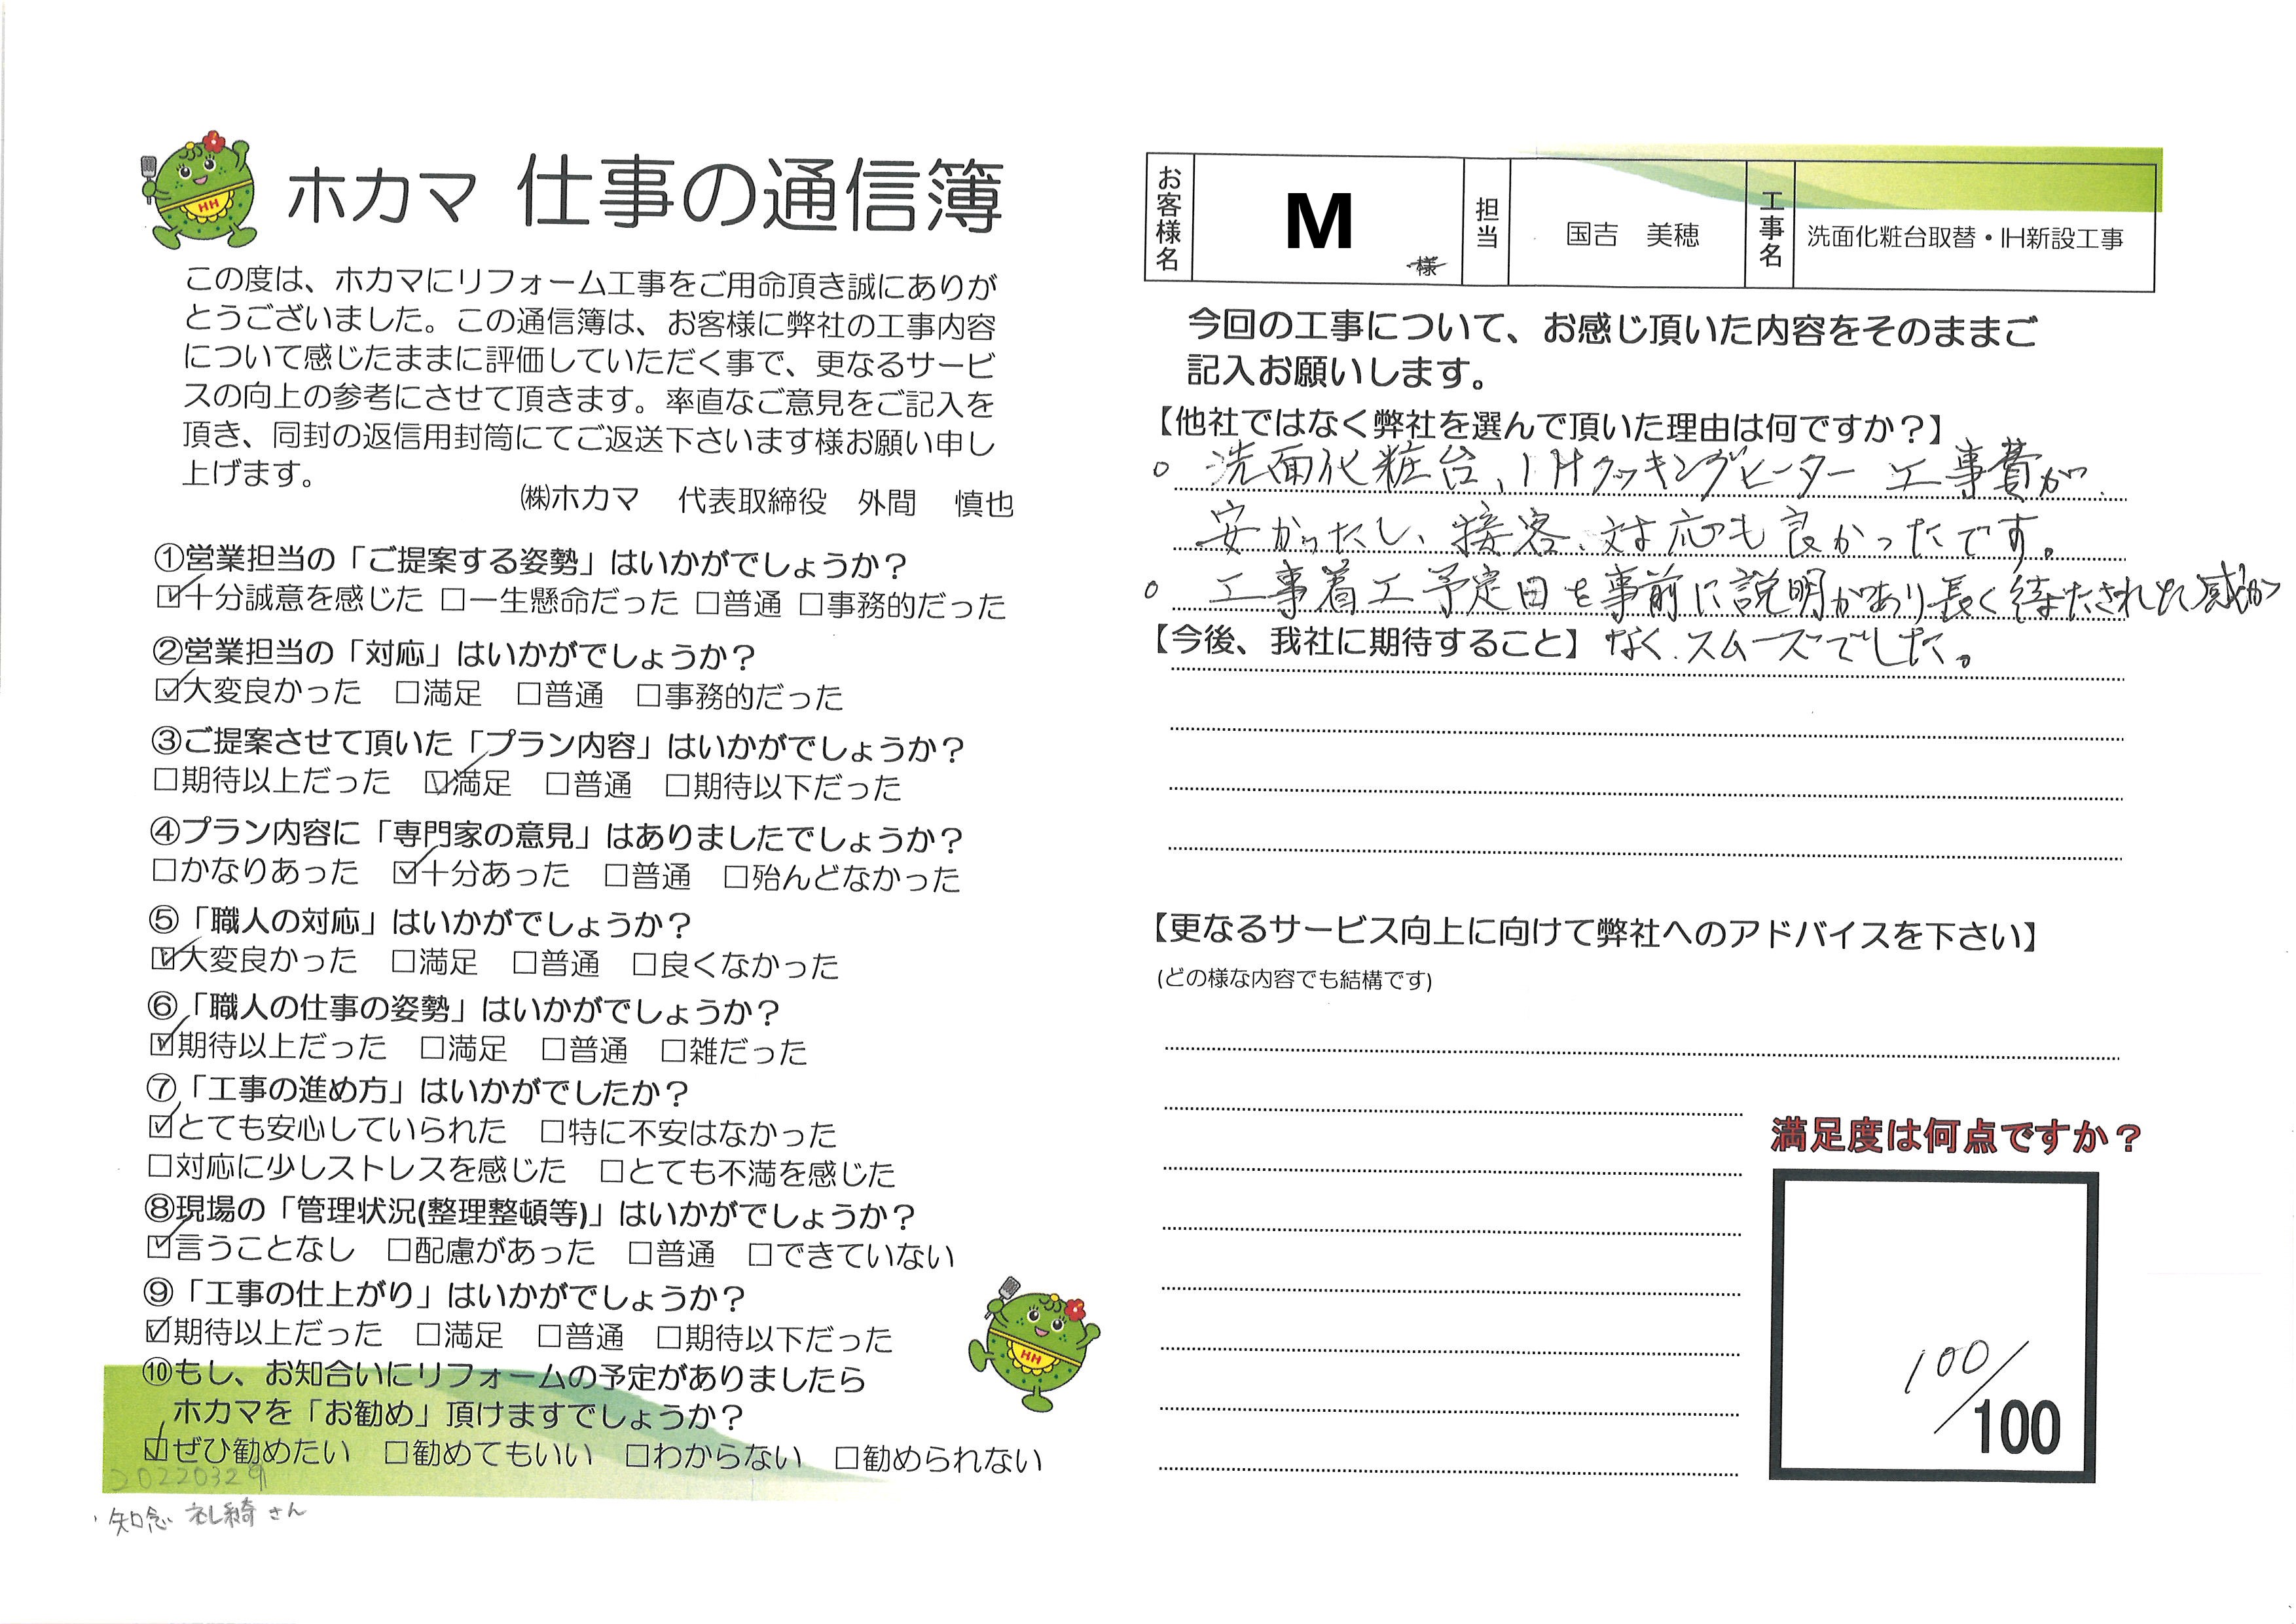 ホカマ 仕事の通信簿
この度は、ホカマにリフォーム工事をご用命頂き誠にありが
とうございました。この通信簿は、お客様に弊社の工事内容
について感じたままに評価していただく事で、更なるサービ
スの向上の参考にさせて頂きます。率直なご意見をご記入を
頂き、同封の返信用封筒にてご返送下さいます様お願い申し
上げます。
㈱ホカマ 代表取締役 外間 慎也
①営業担当の「ご提案する姿勢」はいかがでしょうか？
☑十分誠意を感じた □一生懸命だった □普通 □事務的だった
②営業担当の「対応」はいかがでしょうか？
☑大変良かった □満足 □普通 □事務的だった
③ご提案させて頂いた「プラン内容」はいかがでしょうか？
□期待以上だった ☑満足 □普通 □期待以下だった
④プラン内容に「専門家の意見」はありましたでしょうか？
□かなりあった ☑十分あった □普通 □殆んどなかった
⑤「職人の対応」はいかがでしょうか？
☑大変良かった □満足 □普通 □良くなかった
⑥「職人の仕事の姿勢」はいかがでしょうか？
☑期待以上だった □満足 □普通 □雑だった
⑦「工事の進め方」はいかがでしたか？
☑とても安心していられた □特に不安はなかった
□対応に少しストレスを感じた □とても不満を感じた
⑧現場の「管理状況(整理整頓等)」はいかがでしょうか？
☑言うことなし □配慮があった □普通 □できていない
⑨「工事の仕上がり」はいかがでしょうか？
☑期待以上だった □満足 □普通 □期待以下だった
HH
⑩もし、お知合いにリフォームの予定がありましたら
ホカマを「お勧め」頂けますでしょうか？
☑ぜひ勧めたい □勧めてもいい □わからない □勧められない
20220329
知念 礼綺さん
お客様名 M 様 担当 国吉 美穂 工事名 洗面化粧台取替・IH新設工事
今回の工事について、お感じ頂いた内容をそのままご
記入お願いします。
【他社ではなく弊社を選んで頂いた理由は何ですか？】
○ 洗面化粧台、IHクッキングヒーター 工事費が
安かったし、接客、対応も良かったです。
○ 工事着工予定日を事前に説明があり長く待たされた感が
【今後、我社に期待すること】 なく、スムーズでした。
【更なるサービス向上に向けて弊社へのアドバイスを下さい】
(どの様な内容でも結構です)
満足度は何点ですか？
100/
100